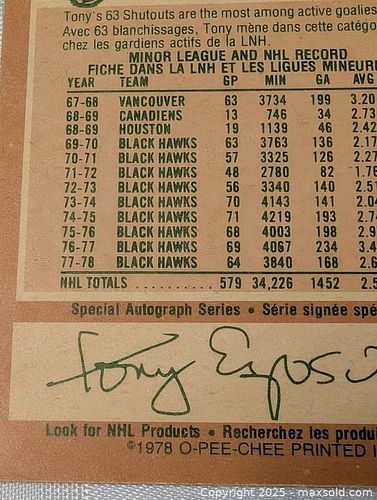 Tony's 63 Shutouts are the most among active goalies
Avec 63 blanchissages, Tony mène dans cette catégo
chez les gardiens actifs de la LNH.
MINOR LEAGUE AND NHL RECORD
FICHE DANS LA LNH ET LES LIGUES MINEUR
YEAR TEAM GP MIN GA AVG
67-68 VANCOUVER 63 3734 199 3.20
68-69 CANADIENS 13 746 34 2.73
68-69 HOUSTON 19 1139 46 2.42
69-70 BLACK HAWKS 63 3763 136 2.17
70-71 BLACK HAWKS 57 3325 126 2.27
71-72 BLACK HAWKS 48 2780 82 1.76
72-73 BLACK HAWKS 56 3340 140 2.51
73-74 BLACK HAWKS 70 4143 141 2.04
74-75 BLACK HAWKS 71 4219 193 2.74
75-76 BLACK HAWKS 68 4003 198 2.9
76-77 BLACK HAWKS 69 4067 234 3.4
77-78 BLACK HAWKS 64 3840 168 2.6
NHL TOTALS .......... 579 34,226 1452 2.5
Special Autograph Series • Série signée spé
Tony Espos
Look for NHL Products • Recherchez les produi
©1978 O-PEE-CHEE PRINTED I
Copyright 2025 - maxsold.com